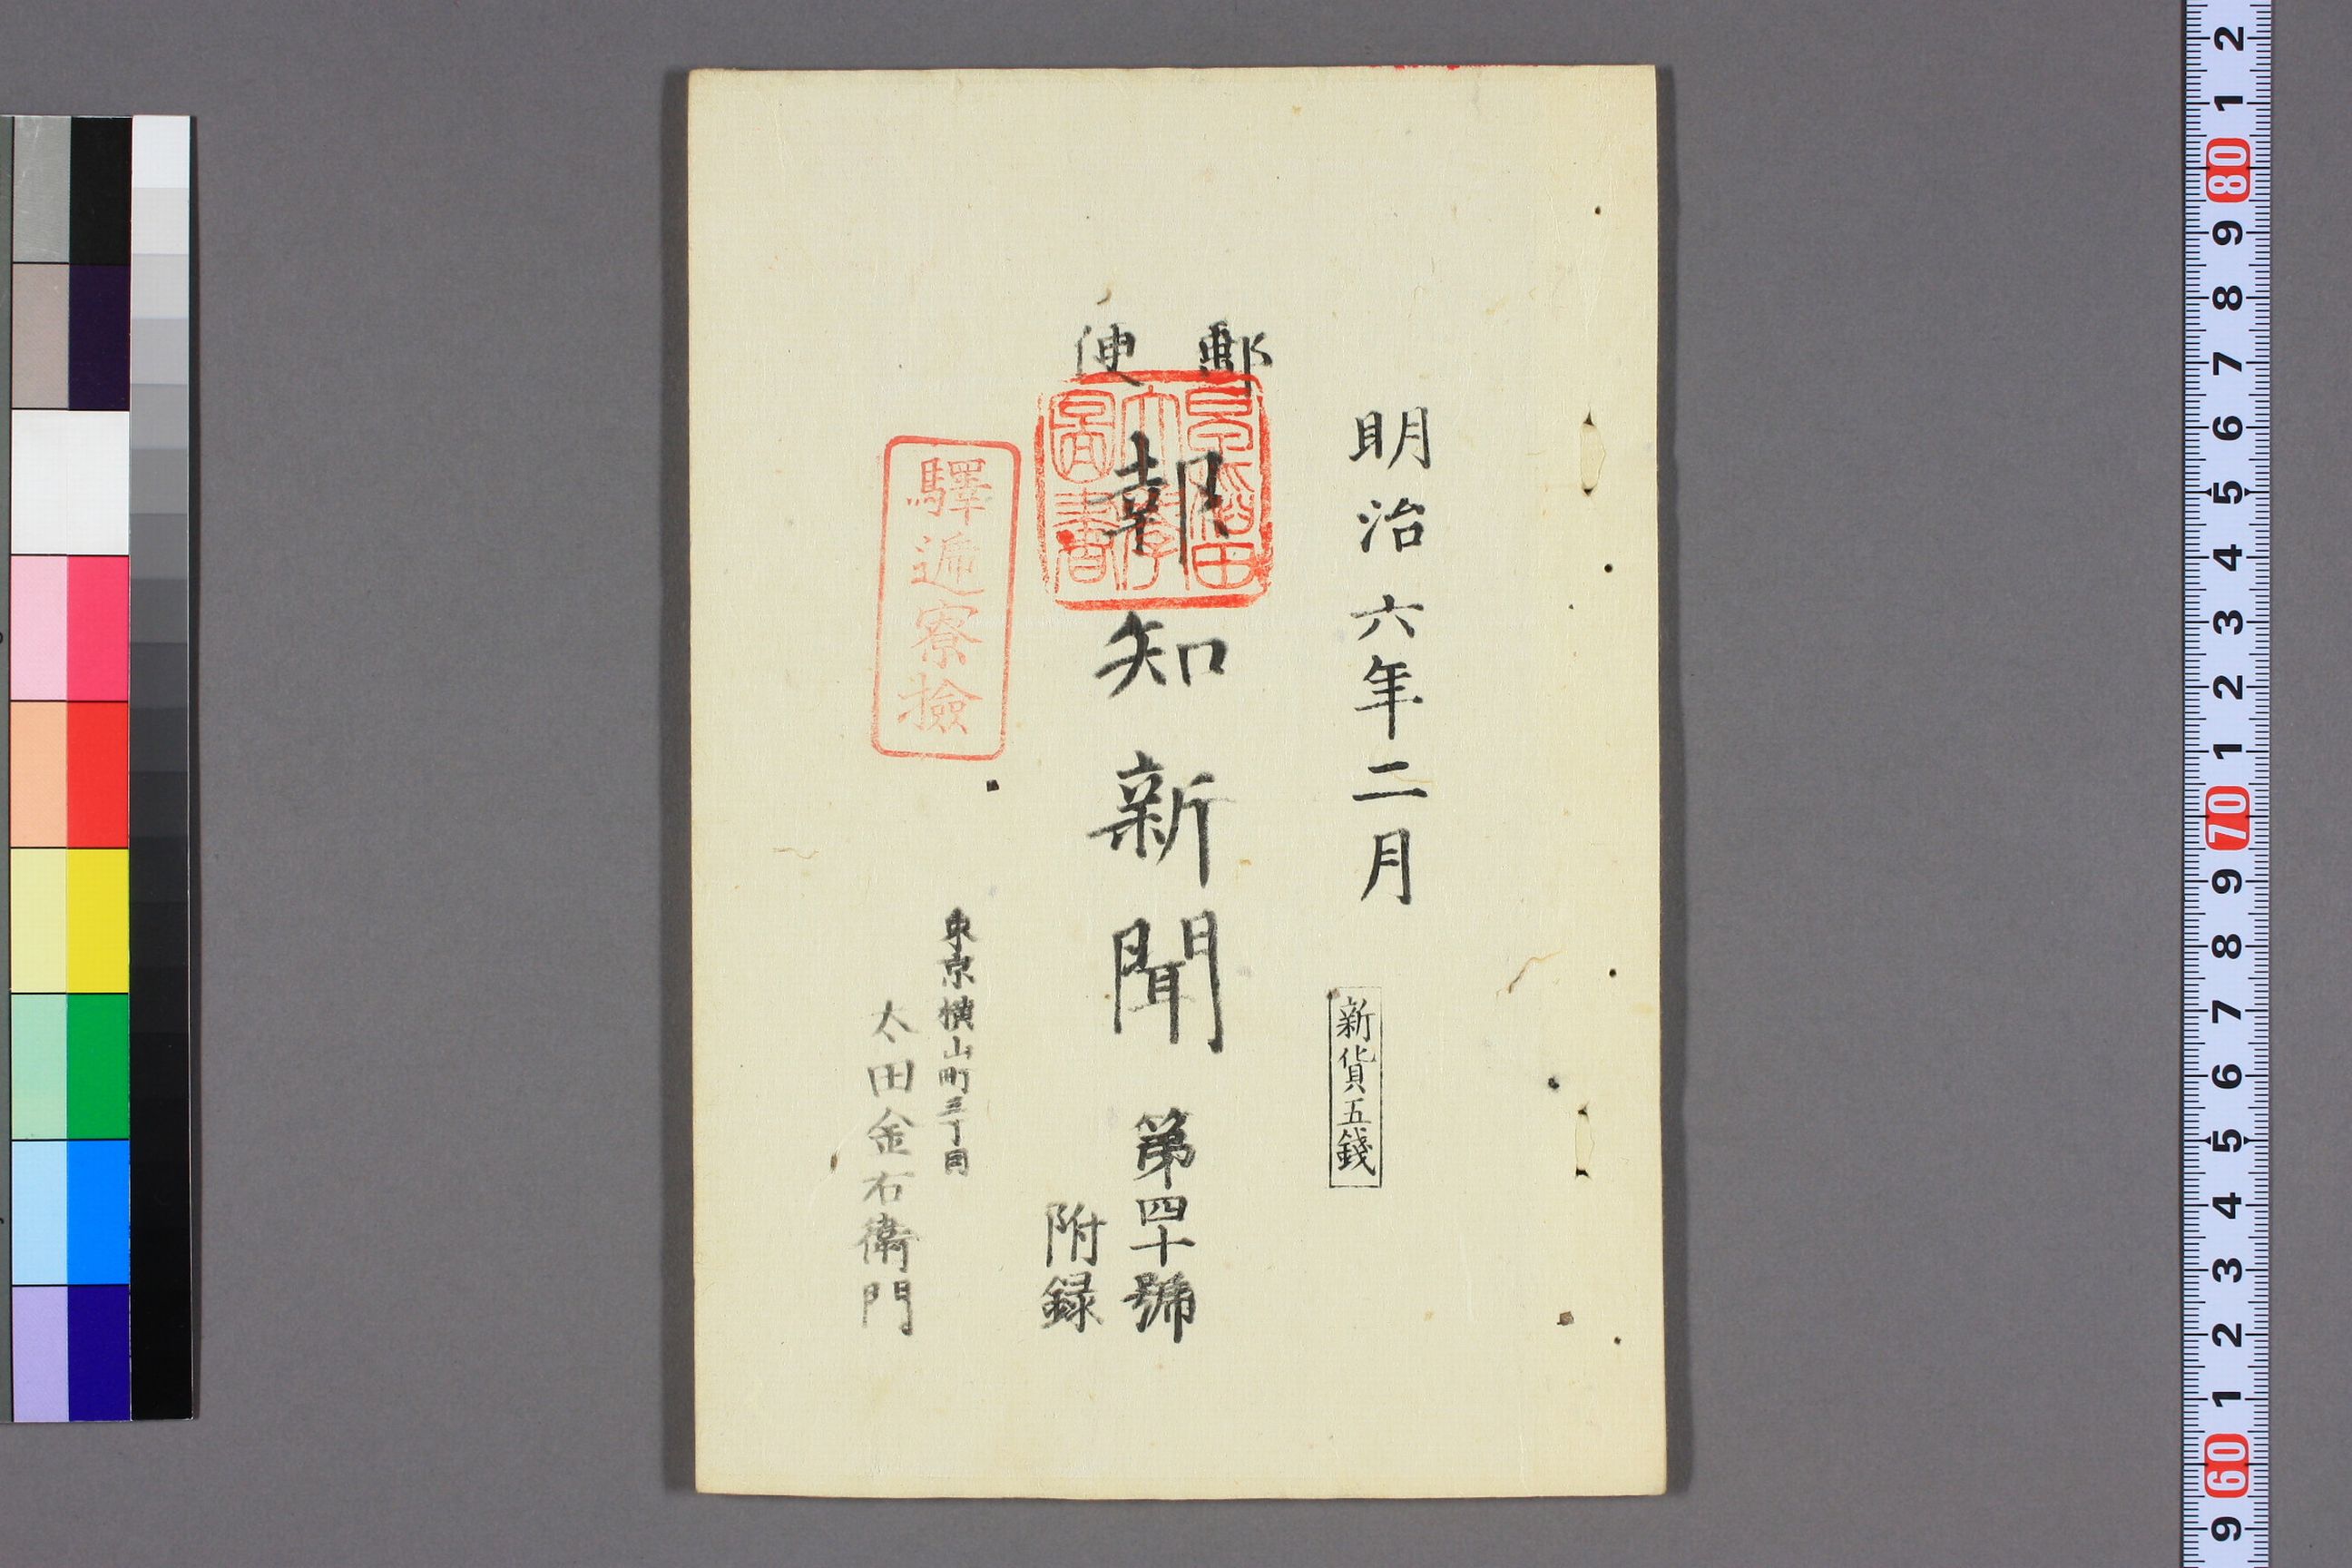 明治六年二月
新貨五錢
郵便
報知新聞
第四十號
附録
早稲田
大學
圖書
驛逓寮撿
東京横山町三丁目
太田金右衛門
2
1
80
9
8
7
6
5
4
3
2
1
70
9
8
7
6
5
4
3
2
1
60
9